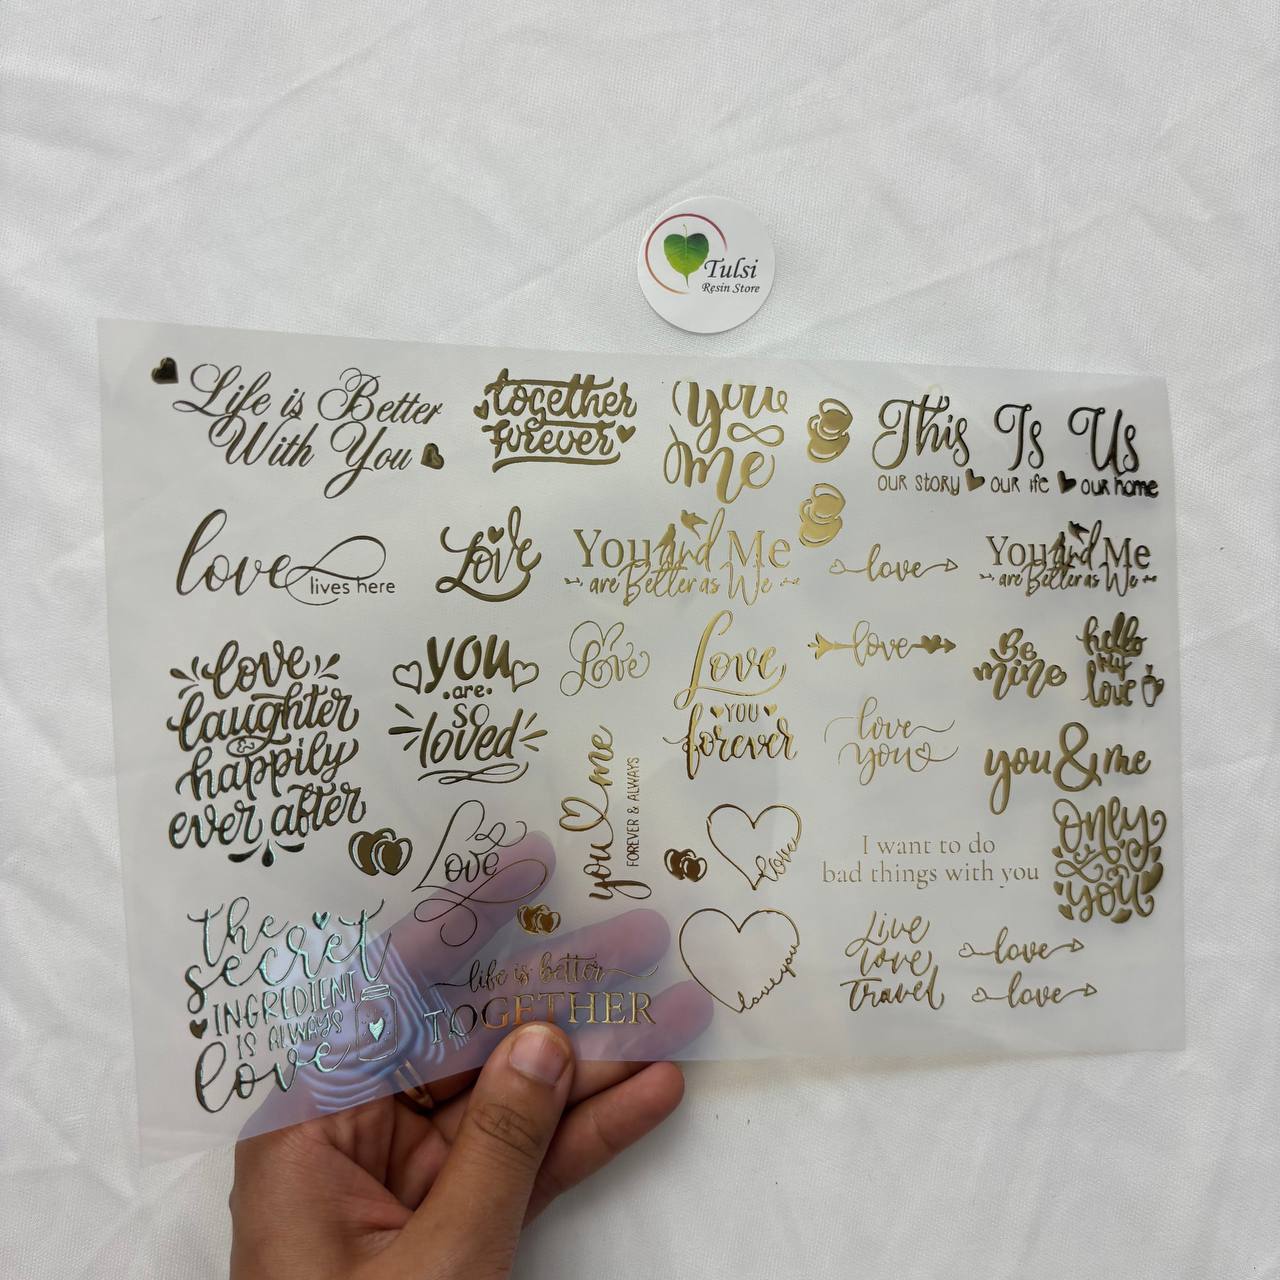 Tulsi
Resin Store
Life is Better
With You
together
forever
you
me
This Is Us
our story our life our home
love
lives here
Love
You and Me
are Better as We
love
You and Me
are Better as We
love
laughter
&
happily
ever after
you
are
so
loved
Love
Love
YOU
forever
love
Be
mine
hello
my
love
love
you
you & me
you me
FOREVER & ALWAYS
Love
love
I want to do
bad things with you
only
you
the
secret
INGREDIENT
IS ALWAYS
love
life is better
TOGETHER
love you
Live
love
Travel
love
love